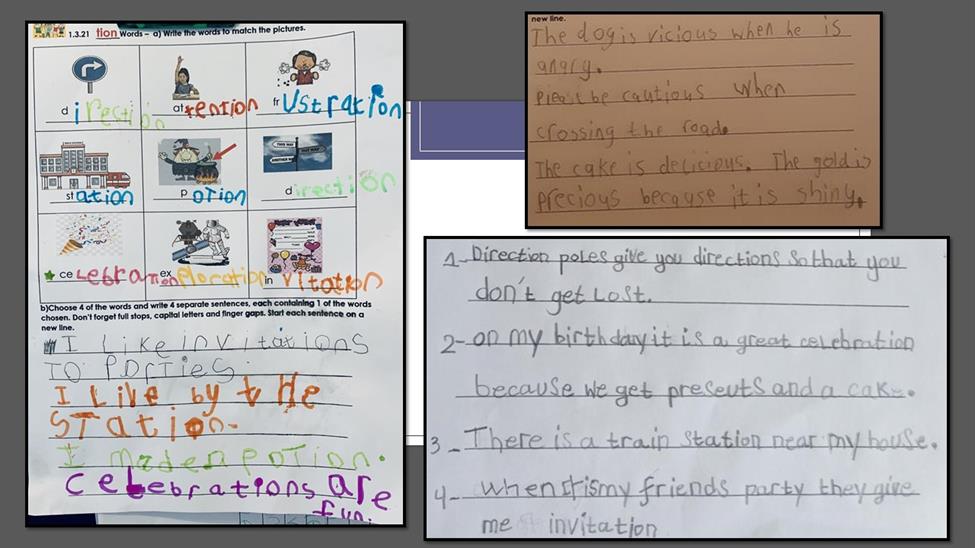 1.3.21 tion Words – a) Write the words to match the pictures.
direction attention frustration
station potion direction
celebration exploration invitation
b)Choose 4 of the words and write 4 separate sentences, each containing 1 of the words
chosen. Don't forget full stops, capital letters and finger gaps. Start each sentence on a
new line.
I Like invitations
To Parties
I Live by the
STation.
I maden potion.
celebrations are
fun.
new line.
The dog is vicious when he is
angry.
Please be cautious when
crossing the road.
The cake is delicious. The gold is
precious because it is shiny.
1- Direction poles give you directions so that you
don't get Lost.
2- on my birthday it is a great celebration
because we get preseuts and a cake.
3- There is a train station near my house.
4- when it is my friends party they give
me invitation